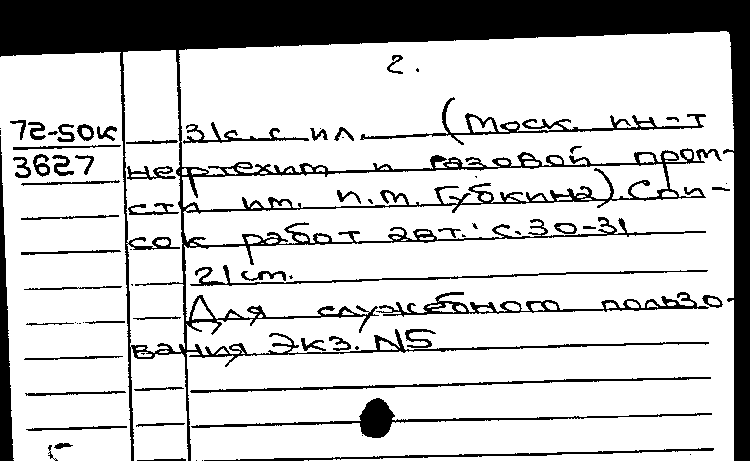 2.
72-50к 31с. с ил. (Моск. ин-т
3627 нефтехим и газовой пром-
сти им. И.М. Губкина). Спи-
сок работ авт.: с. 30-31
21 см.
Для служебного пользо-
вания Экз. N5